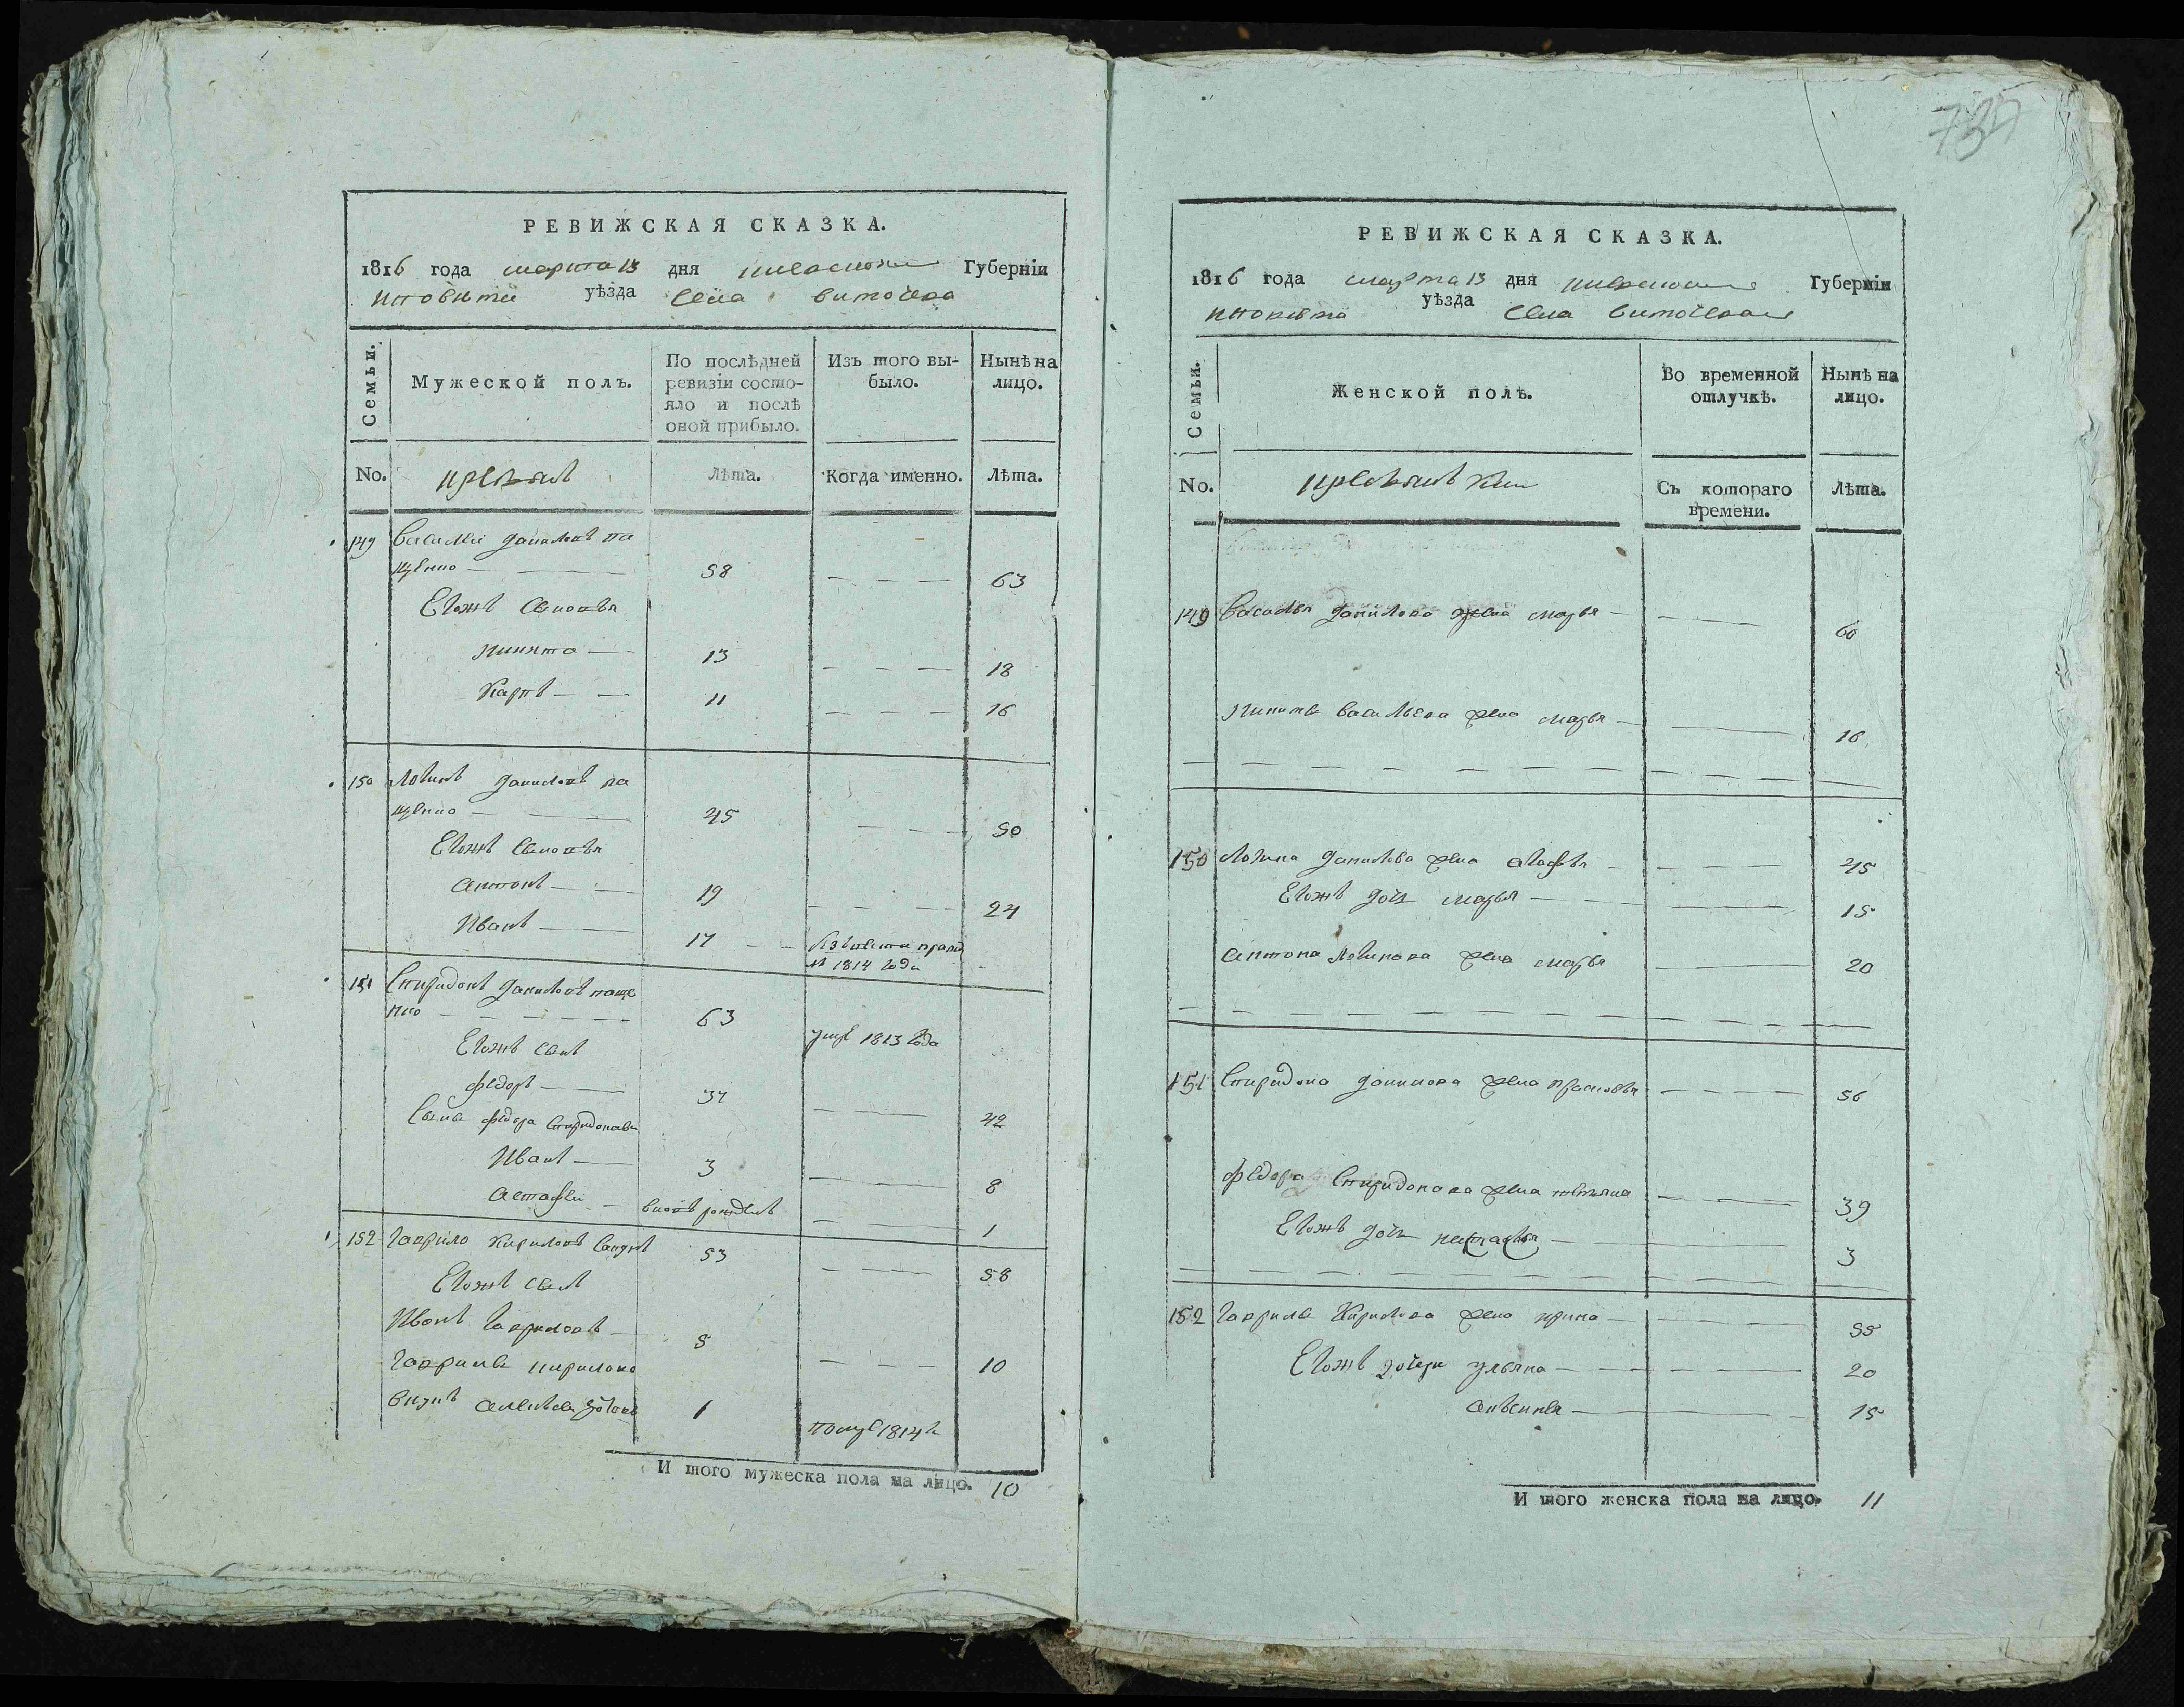 РЕВИЖСКАЯ СКАЗКА.
1816 года марта 13 дня Губернїи
уѣзда села витачева
Семьи.
Мужеской полъ.
По послѣдней ревизїи состояло и послѣ оной прибыло.
Изъ того выбыло.
Нынѣ на лицо.
No.
Лѣта.
Когда именно.
Лѣта.
149 Василеи даниловъ па
щенко — 58 — 63
Егожъ сыновья
Никита — 13 — 18
Карпъ — 11 — 16
150 Логинъ даниловъ па
щенко — 45 — 50
Егожъ сыновья
антонъ — 19 — 24
Иванъ — 17
1814 года
151 Спиридонъ даниловъ паще
нко — 63 умре 1813 года
Егожъ сынъ
федоръ — 37 — 42
Сыны федора Спиридонова
Иванъ — 3 — 8
астафеи — вновь рожденъ — 1
152 Гаврило Кириловъ 53 — 58
Егожъ сынъ
Иванъ Гавриловъ — 5 — 10
Гаврилы кирилова
внукъ 1 помре 1814 г
И того мужеска пола на лицо. 10
734
РЕВИЖСКАЯ СКАЗКА.
1816 года марта 13 дня Губернїи
уѣзда села
Семьи.
Женской полъ.
Во временной отлучкѣ.
Нынѣ на лицо.
No.
Съ котораго времени.
Лѣта.
149 Василья данилова жена марья — 60
Никиты васильева жена марья — 16
150 Логина данилова жена агафья — 45
Егожъ дочь марья — 15
антона логинова жена марья — 20
151 Спиридона данилова жена прасковья — 56
федора Спиридонова жена татьяна — 39
Егожъ дочь настасья — 3
152 Гаврилы Кирилова жена ирина — 55
Егожъ дочери ульяна — 20
— 15
И того женска пола на лицо. 11